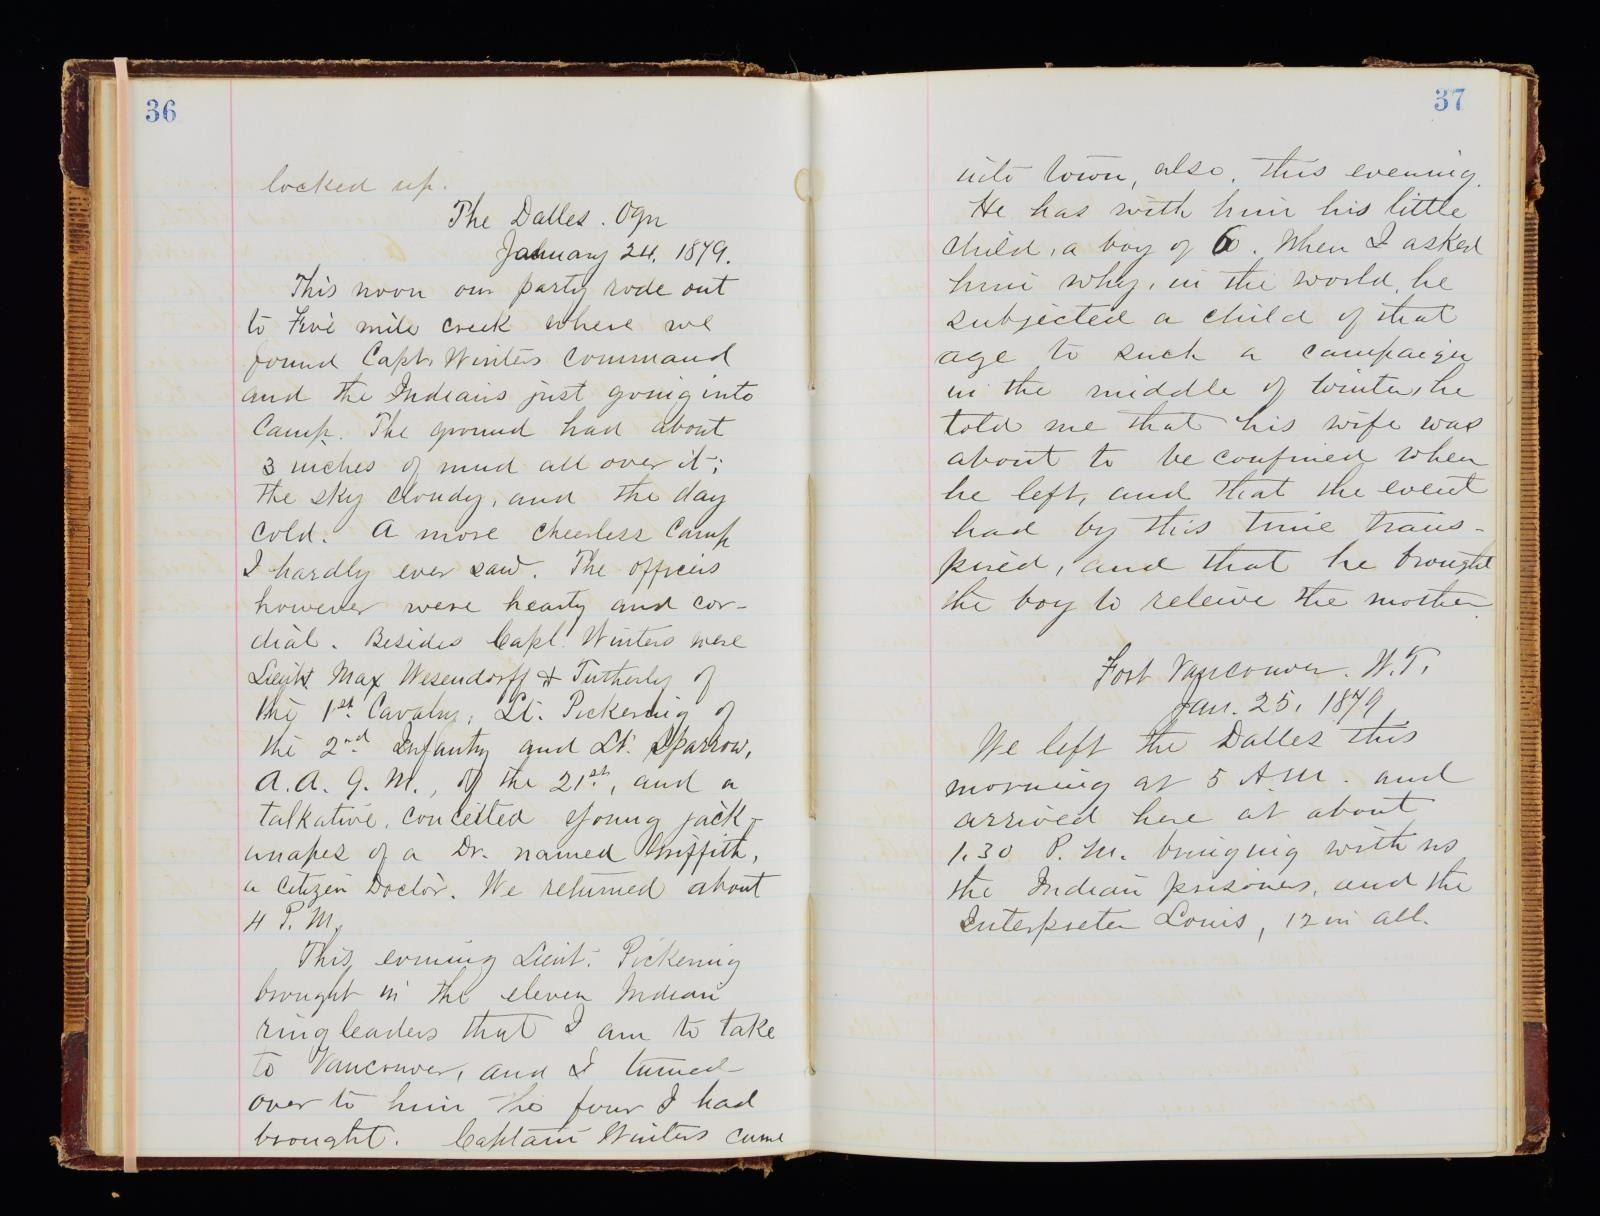 36
locked up.
The Dalles. Ogn
January 24, 1879.
This noon our party rode out
to Five mile creek where we
found Capt. Winters command
and the Indians just going into
Camp. The ground had about
3 inches of mud all over it;
the sky cloudy, and the day
cold. A more cheerless camp
I hardly ever saw. The officers
however were hearty and cor-
dial. Besides Capt. Winters were
Lieuts Max Wesendorff & Tutherly of
the 1st. Cavalry, Lt. Pickering of
the 2nd Infantry and Lt. Sparrow,
A.A.Q.M., of the 21st, and a
talkative, conceited young jack-
anapes of a Dr. named Griffith,
a Citizen Doctor. We returned about
4 P.M.
This evening Lieut. Pickering
brought in the eleven Indian
ringleaders that I am to take
to Vancouver, and I turned
over to him the four I had
brought. Captain Winters came
37
into town, also, this evening.
He has with him his little
child, a boy of 6. When I asked
him why, in the world, he
subjected a child of that
age to such a campaign
in the middle of winter, he
told me that his wife was
about to be confined when
he left, and that the event
had by this time trans-
pired, and that he brought
the boy to releive the mother.
Fort Vancouver. W.T.
Jan. 25, 1879
We left the Dalles this
morning at 5 A.M. and
arrived here at about
1.30 P.M. bringing with us
the Indian prisoners, and the
Interpreter Louis, 12 in all.